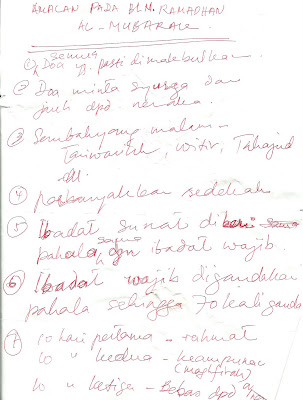 AMALAN PADA BLN. RAMADHAN
AL-MUBARAK
① semua
Doa pasti dimakbulkan.
② Doa minta syurga dan
jauh dpd neraka.
③ Sembahyang malam -
Tarawikh, witir, Tahajud
dll.
④ perbanyakkan sedekah
⑤ Ibadat sunat diberi sama
pahala sama dgn ibadat wajib.
⑥ Ibadat wajib digandakan
pahala sehingga 70 kali ganda
⑦ 10 hari pertama - rahmat
10 " kedua - keampunan
(maghfirah)
10 " ketiga - Bebas dpd